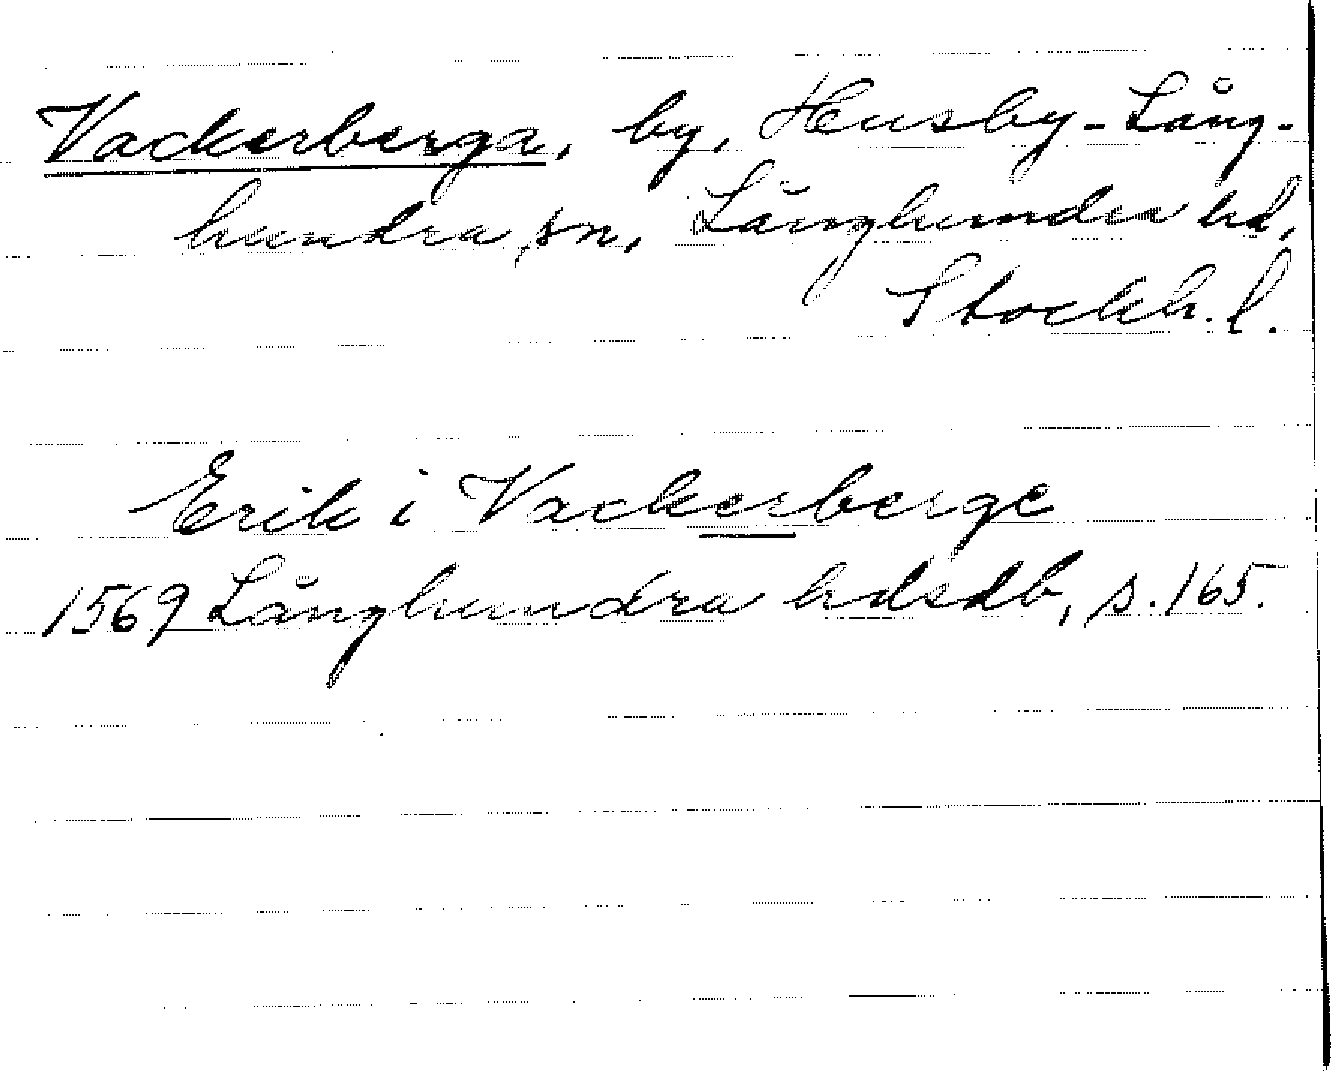 Vackerberga, by, Husby-Lång-
hundra sn, Långhundra hd,
Stockh. l.
Erik i Vackerberge
1569 Långhundra hdsdb, s. 165.